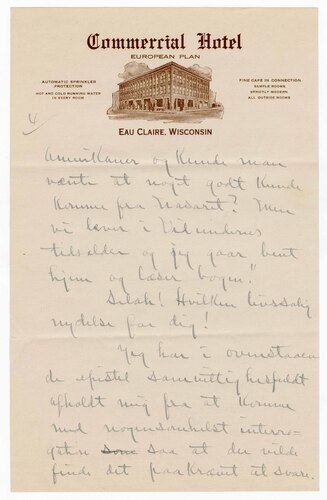 Commercial Hotel
EUROPEAN PLAN
AUTOMATIC SPRINKLER
PROTECTION
HOT AND COLD RUNNING WATER
IN EVERY ROOM
FINE CAFE IN CONNECTION
SAMPLE ROOMS
STRICTLY MODERN
ALL OUTSIDE ROOMS
EAU CLAIRE, WISCONSIN
4/
Amerikaner og kunde man
vænte at noget godt kunde
komme fra Nasaret? Men
vi lever i Vidunderes
tidsalder og jeg gaar bent
hjem og læser bogen."
Selah! Hvilken livssalig
nydelse for dig!
Jeg har i ovenstaaen
de epistel samvittighesfuldt
afholdt mig fra at komme
med nogensomhelst interro-
gation saa at du vilde
finde det paakrævet at svare.